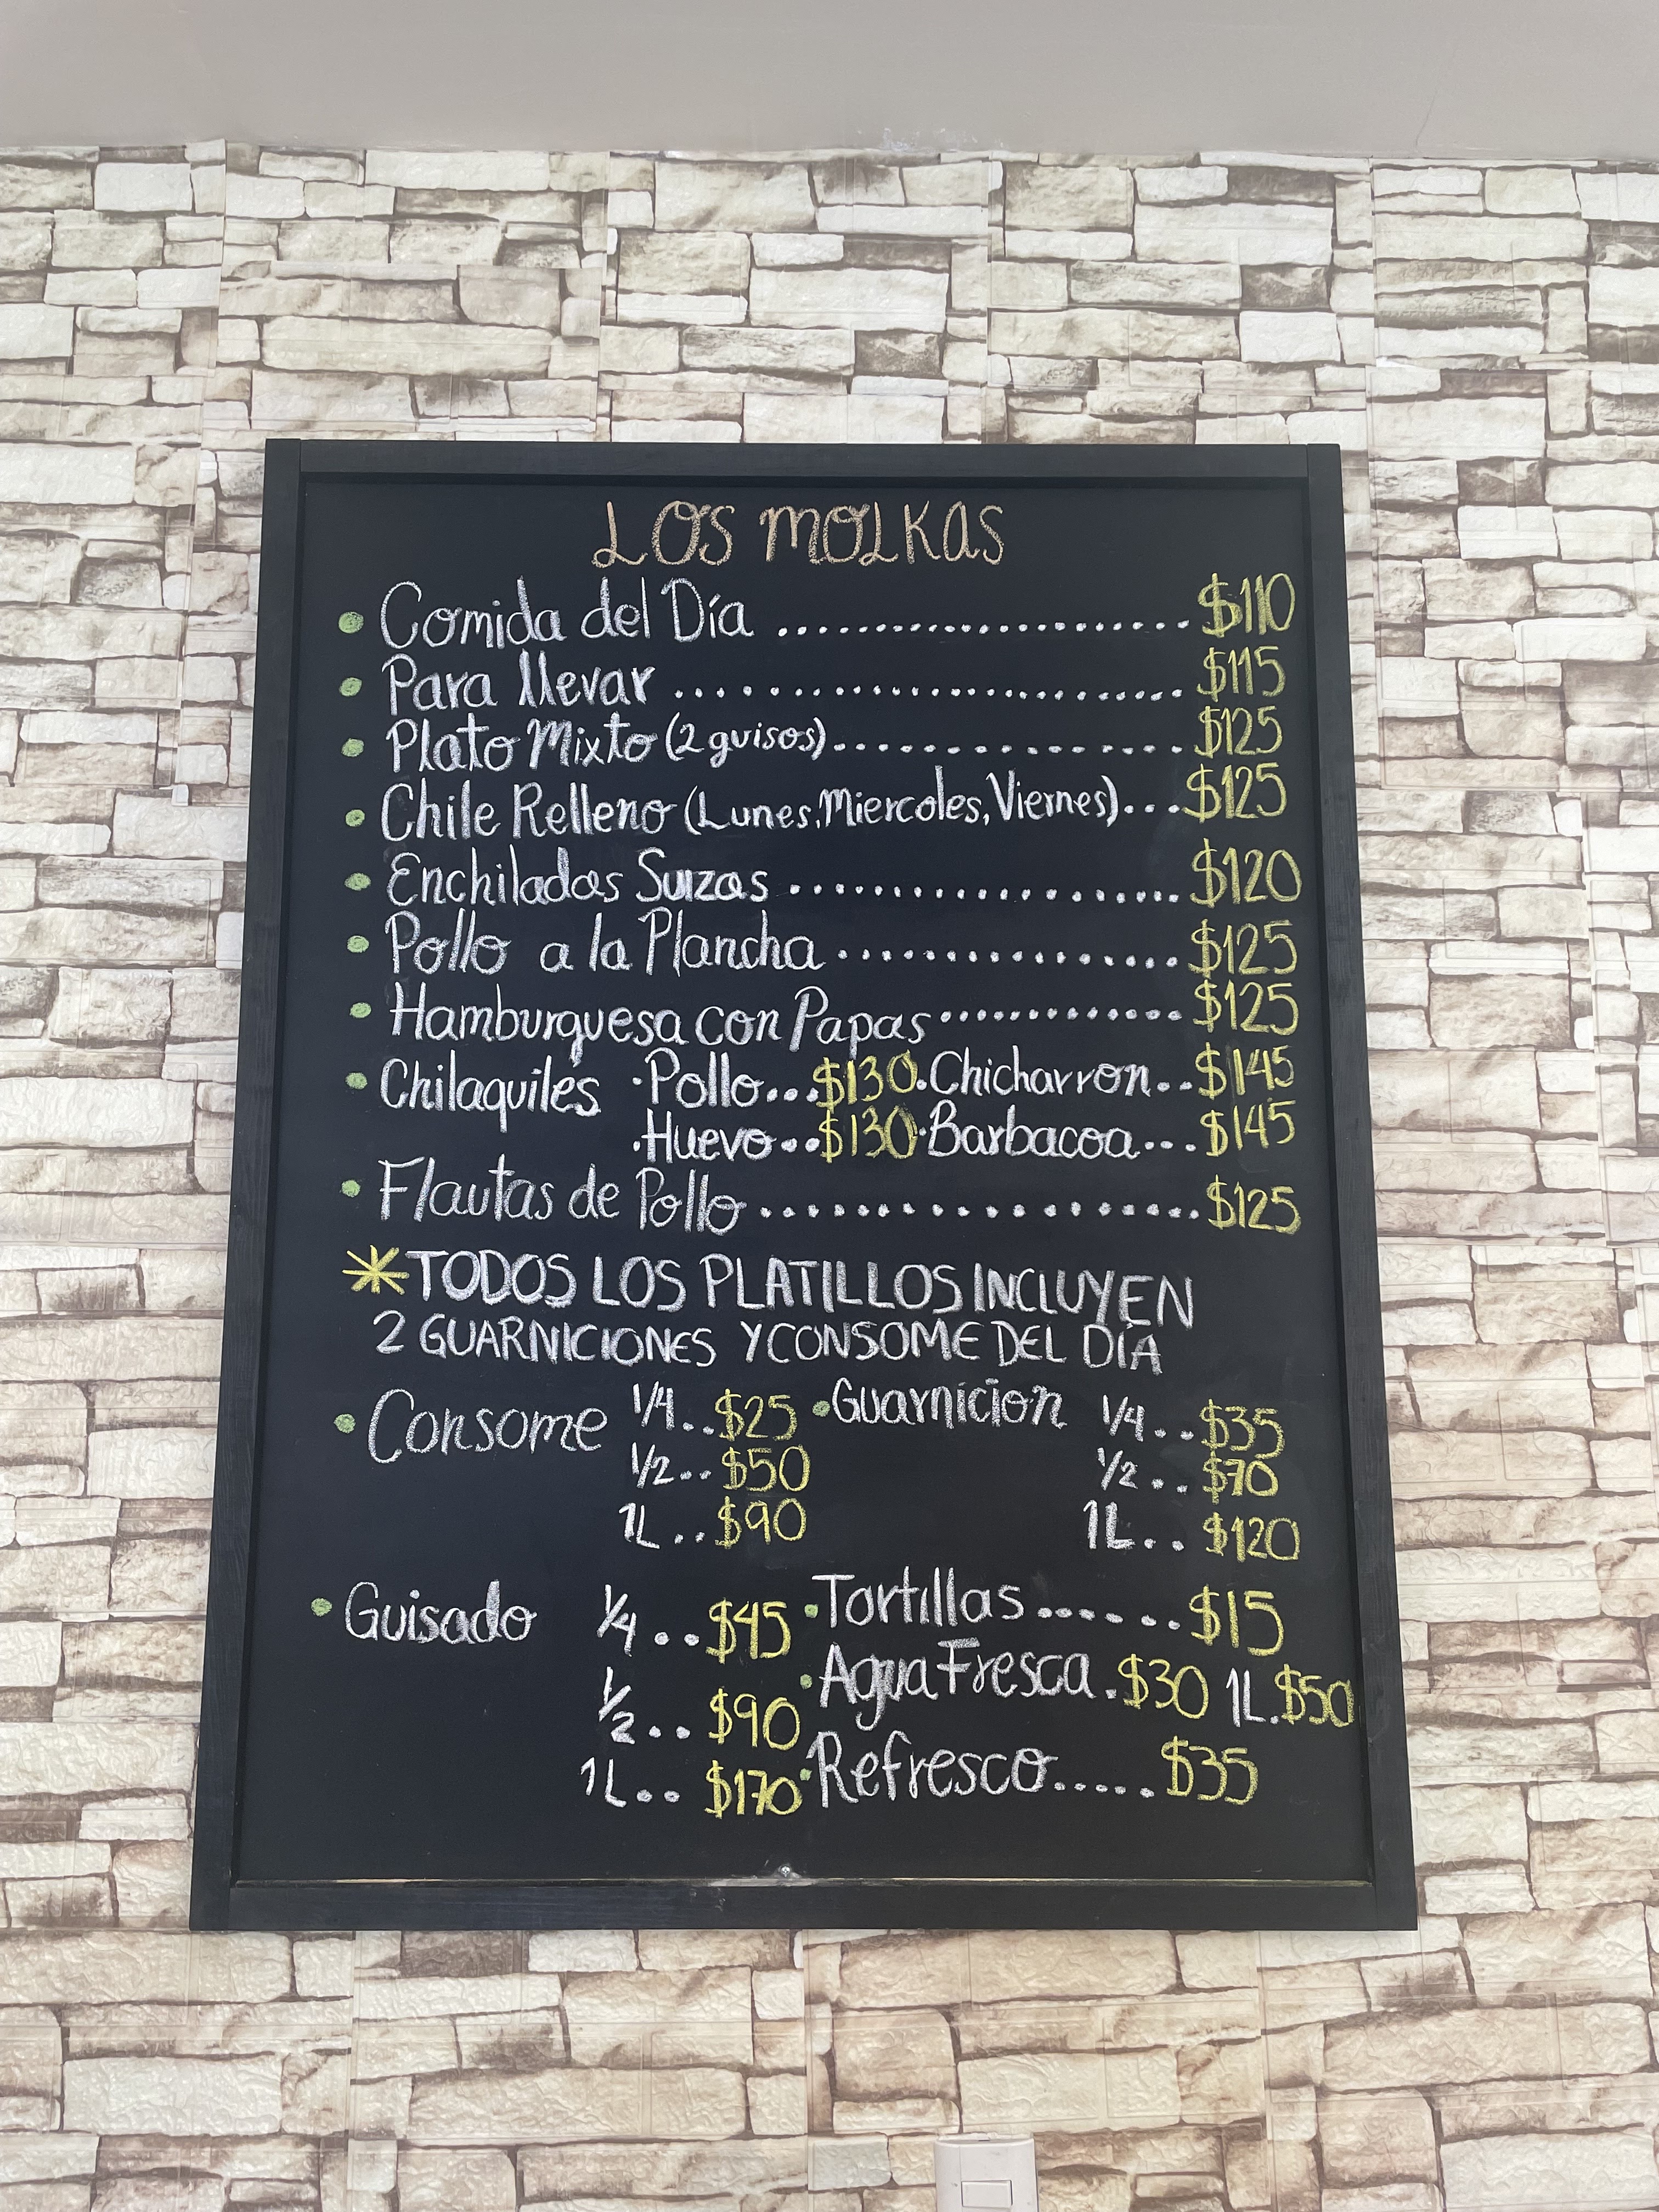 LOS MOLKAS
• Comida del Día .......................... $110
• Para llevar .......................... $115
• Plato Mixto (2 guisos) .................. $125
• Chile Relleno (Lunes, Miercoles, Viernes)....$125
• Enchiladas Suizas ...................... $120
• Pollo a la Plancha .................... $125
• Hamburguesa con Papas .............. $125
• Chilaquiles · Pollo...$130 · Chicharron..$145
· Huevo..$130 · Barbacoa...$145
• Flautas de Pollo ...................... $125
* TODOS LOS PLATILLOS INCLUYEN
2 GUARNICIONES Y CONSOME DEL DÍA
• Consome 1/4..$25 • Guarnicion 1/4..$35
1/2..$50 1/2..$70
1L..$90 1L..$120
• Guisado 1/4..$45 • Tortillas.......$15
1/2..$90 • Agua Fresca.$30 1L.$50
1L..$170 • Refresco.....$35